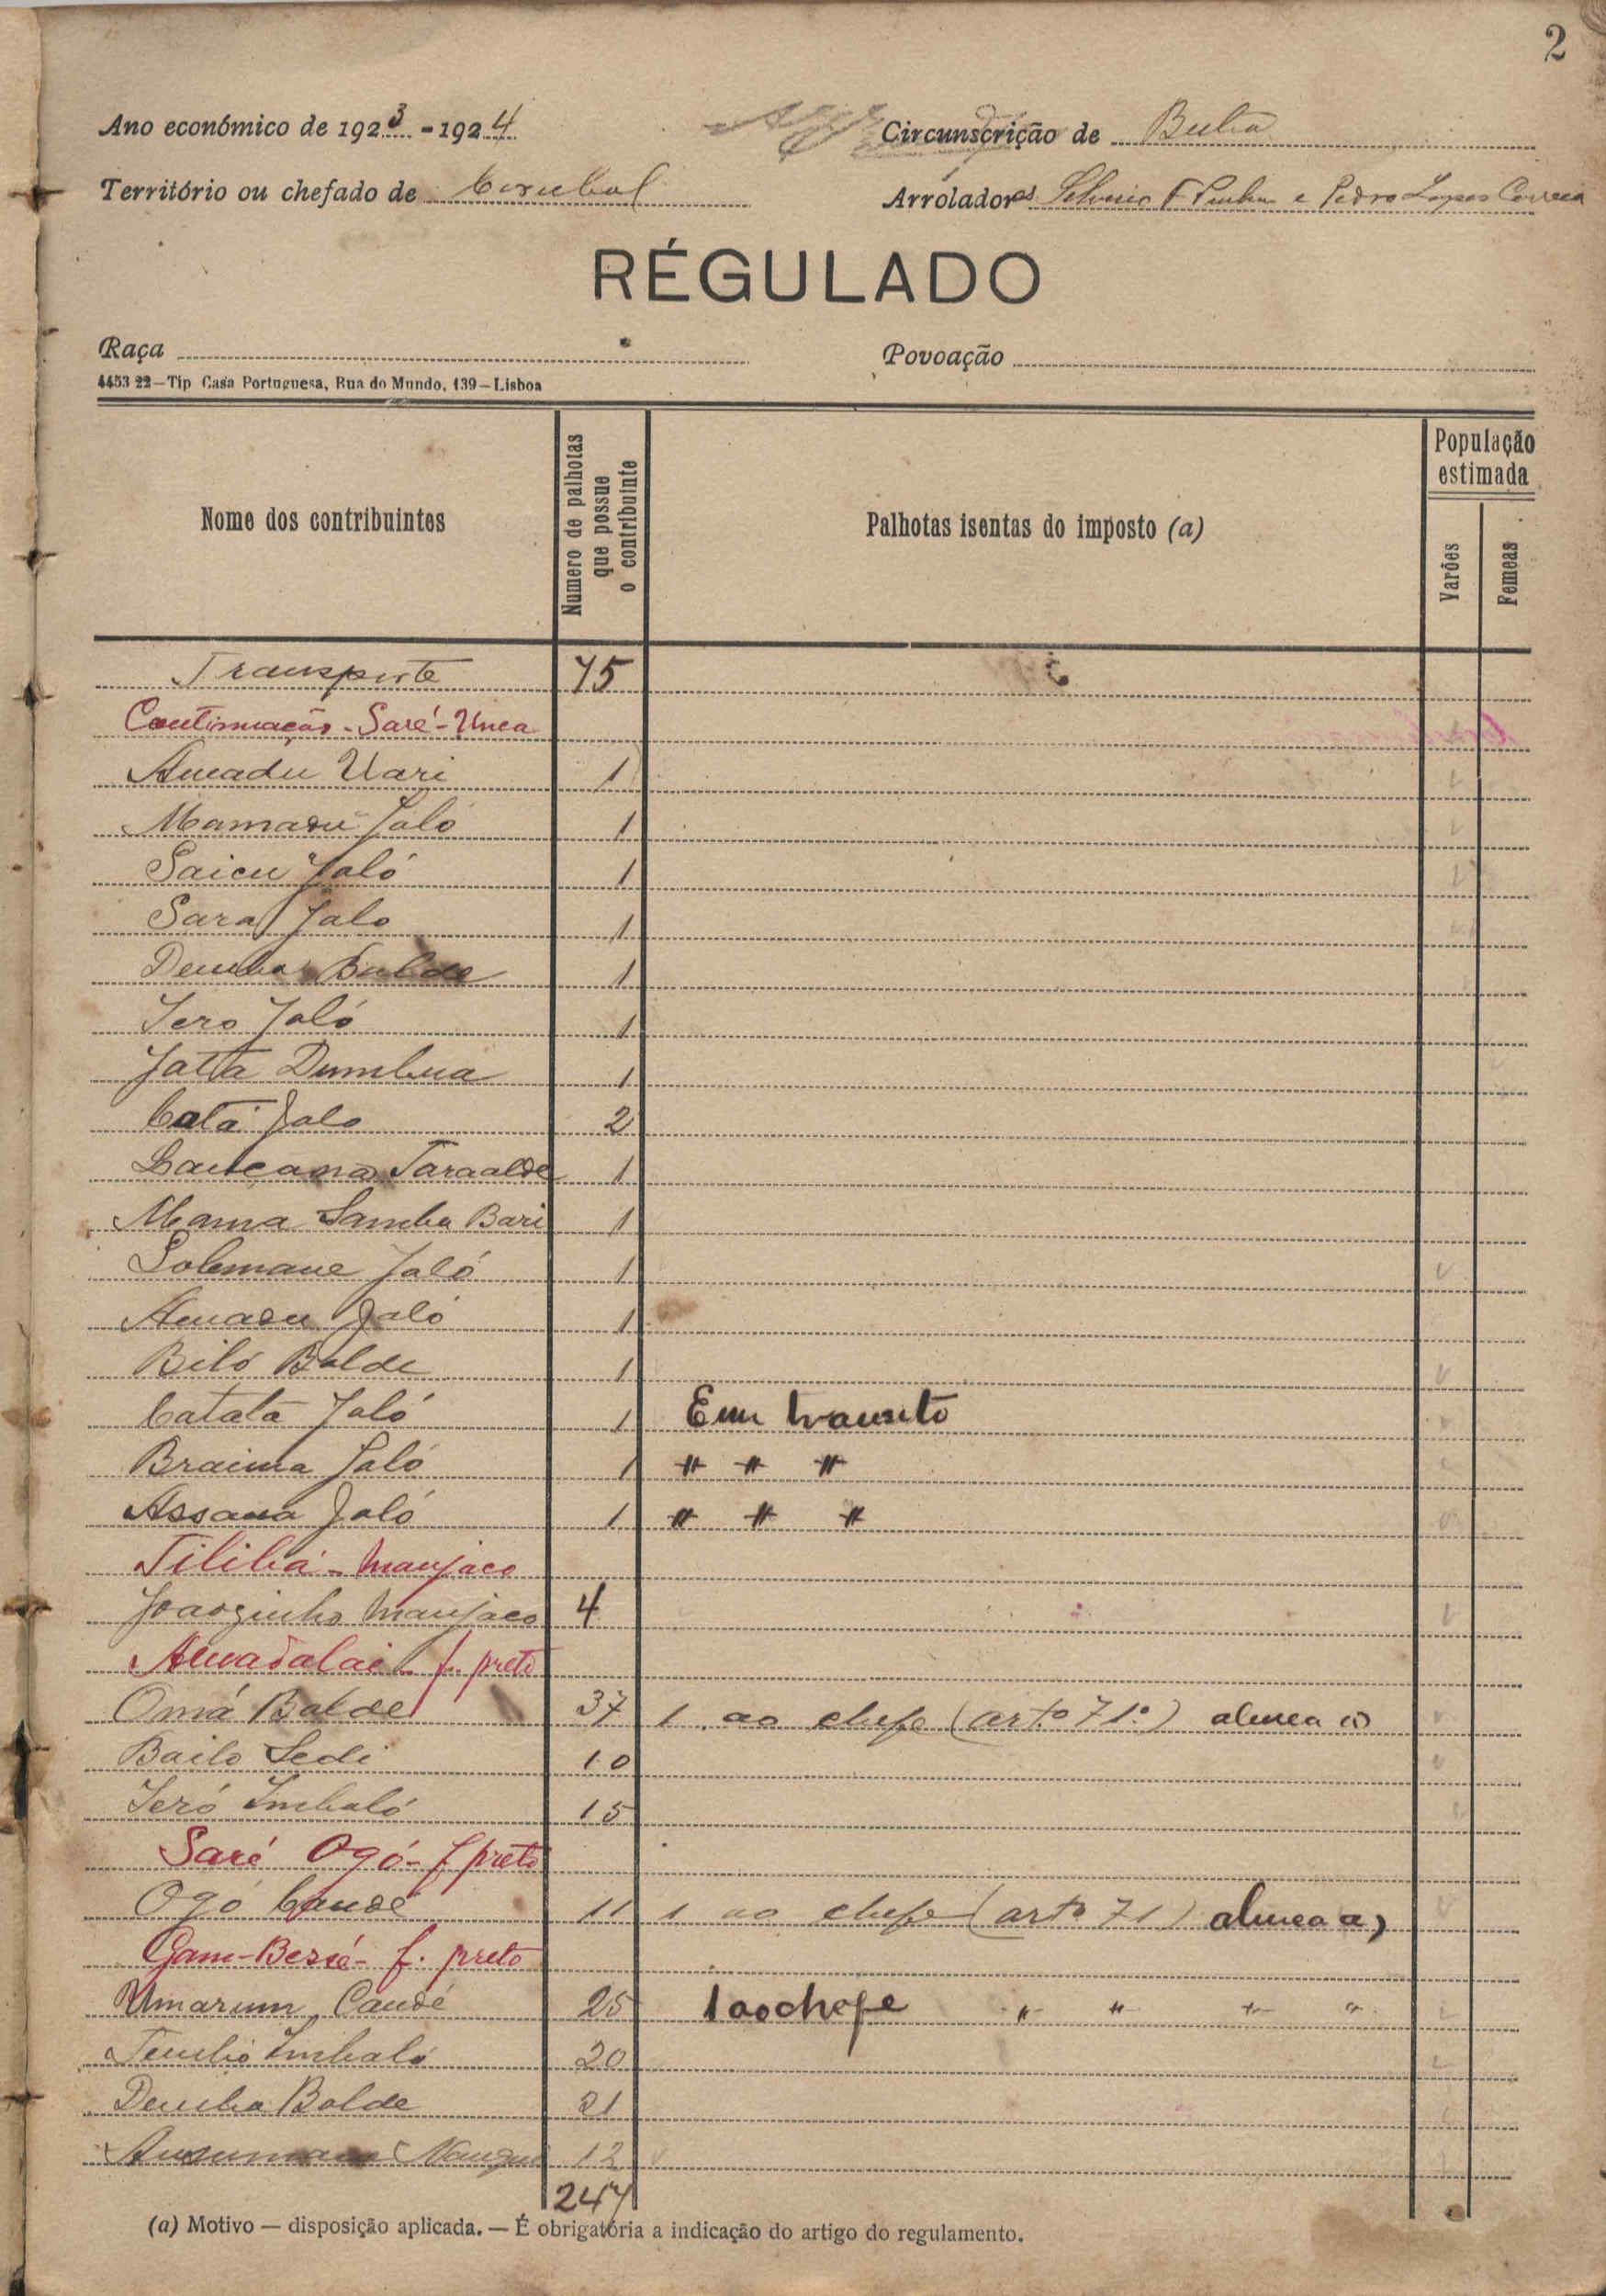 2
Ano económico de 1923-1924
Circunscrição de Buba
Território ou chefado de Corubal
Arrolador es F e Pedro Lopes Correia
RÉGULADO
Raça
Povoação
4453 22—Tip Casa Portuguesa, Rua do Mundo, 139—Lisboa
Nome dos contribuintes
Numero de palhotas que possue o contribuinte
Palhotas isentas do imposto (a)
População estimada
Varões
Femeas
Transporte 75
Continuação - Saré-Unca
Amadu Uari 1
Mamadu Jaló 1
Saicu Jaló 1
Sara Jalo 1
Demba Balde 1
Iero Jaló 1
Jatta Dumbua 1
Catá Jalo 2
Lançana Taraalde 1
Mama Samba Bari 1
Solemane Jaló 1
Amadu Jaló 1
Biló Balde 1
Catata Jaló 1 Em transito
Braima Jaló 1 " " "
Assana Jaló 1 " " "
Tilibá - Manjaco
Joaozinho Manjaco 4
Amadalai - f. preto
Omá Balde 37 1 ao chefe (artº 71º) alinea a)
Bailo Sedi 10
Ieró Imbaló 15
Saré Ogó - f. preto
Ogó Candé 11 1 ao chefe (artº 71) alinea a)
Gam-Besse - f. preto
Umarum Candé 25 1 ao chefe " " " "
Imbaló 20
Demba Balde 21
12
247
(a) Motivo — disposição aplicada. — É obrigatória a indicação do artigo do regulamento.